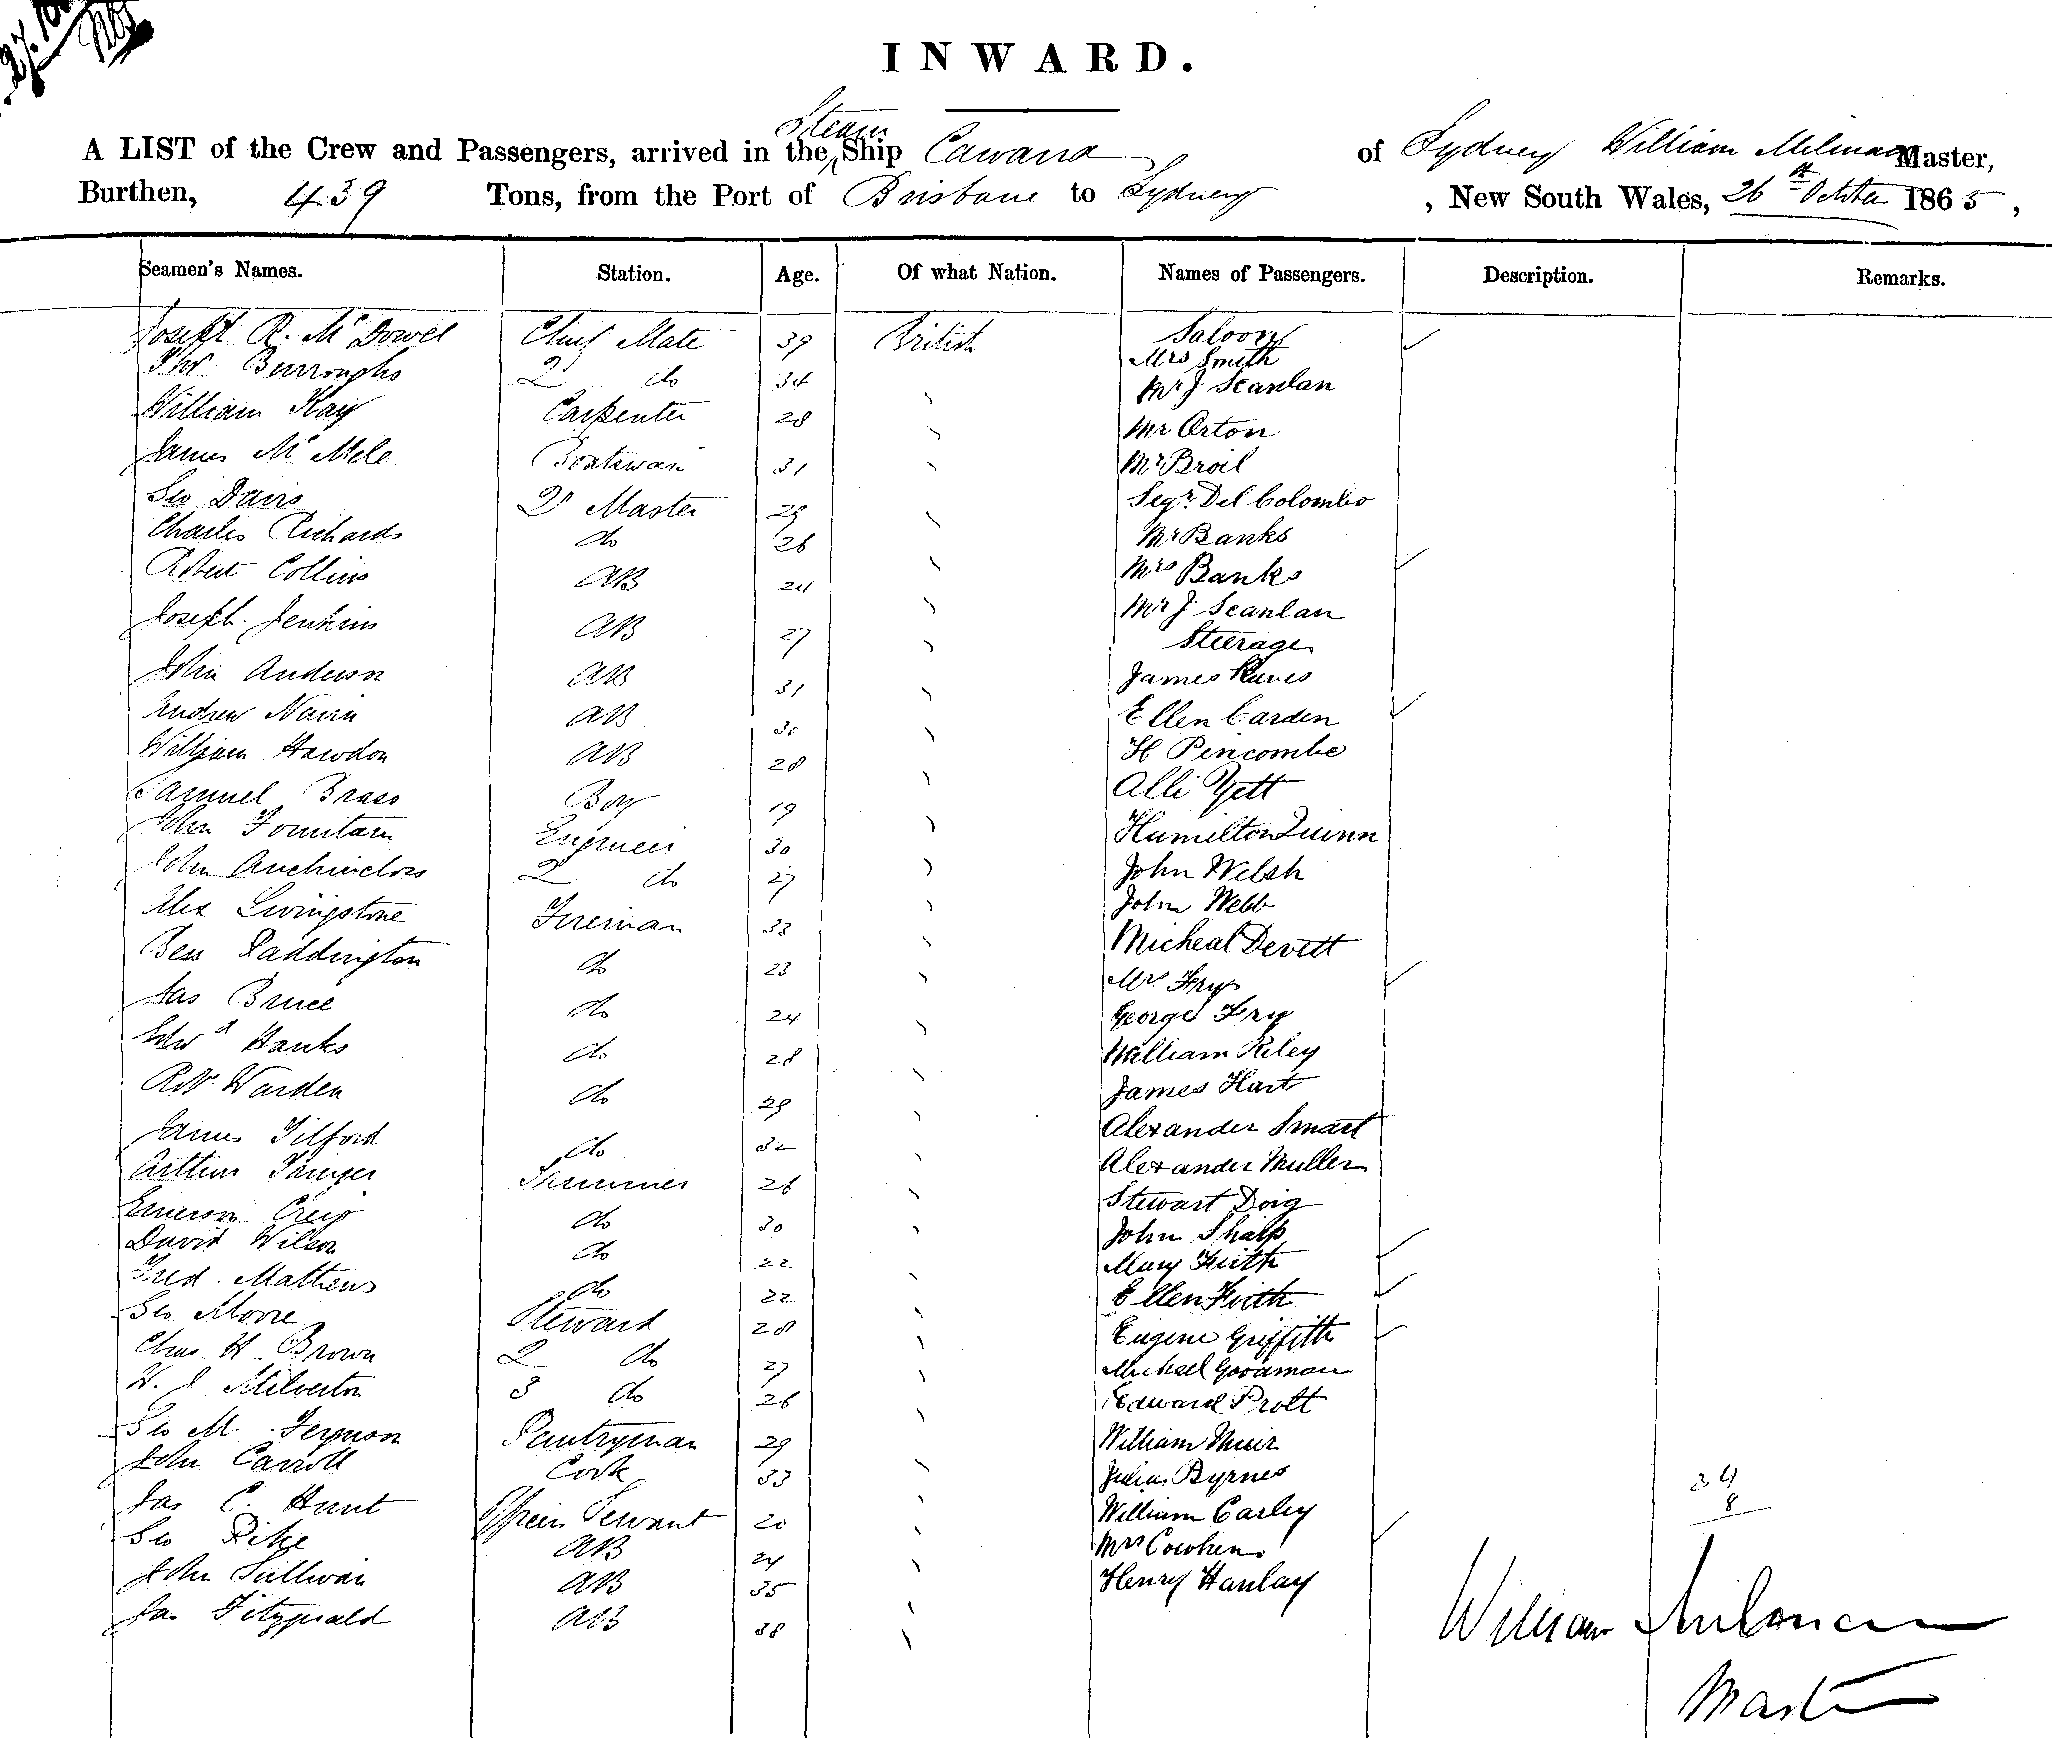 INWARD.
A LIST of the Crew and Passengers, arrived in the Steam Ship Cawarra of Sydney William Milman Master,
Burthen, 439 Tons, from the Port of Brisbane to Sydney, New South Wales, 26th October 1865,
Seamen's Names. Station. Age. Of what Nation. Names of Passengers. Description. Remarks.
Joseph R. McDowel Chief Mate 39 British Saloon
Mrs Smith
Thos Burroughs 2 do 34 Mr J Scanlan
William Kay Carpenter 28 Mr Orton
James Mc Mele Boatswain 31 Mr Broil
Geo Davis 2r Master 29 Segr Del Colombo
Charles Richards do 26 Mr Banks
Robert Collins AB 24 Mrs Banks
Joseph Jenkins AB 27 Mr J Scanlan
Steerage
John Anderson AB 31 James Reeves
Andrew Nairn AB 30 Ellen Carden
William Hawdon AB 28 H Pencombe
Samuel Brass Boy 19 Alli Yett
John Fountain Engineer 30 Hamilton Quinn
John Auchincloss 2 do 27 John Welsh
Alex Livingstone Fireman 33 John Webb
Bess Paddington do 23 Micheal Devett
Jas Bruce do 24 Mrs Fry
George Fry
Edwd Hanks do 28 William Riley
Robt Warden do 29 James Hart
James Tilford do 32 Alexander Smart
Arthur Trimmer 26 Alexander Muller
Emerson Creig do 30 Stewart Doig
David Wilson do 22 John Sharp
Mary Firth
Fred. Mathews do 22 Ellen Firth
Geo Moore Steward 28 Eugene Griffith
Chas H Brown 2 do 27 Micheal Goodman
W. J Milverton 3 do 26 Edward Prott
Geo M Ferguson Pantryman 29 William Muir
John Carroll Cook 33 Julia Byrnes
Jas C. Hunt Officers Servant 20 William Carley
Geo Pike AB 24 Mrs Cowhen
John Sullivan AB 35 Henry Hanlay
Jas Fitzgerald AB 38
34
8
William Milman
Master